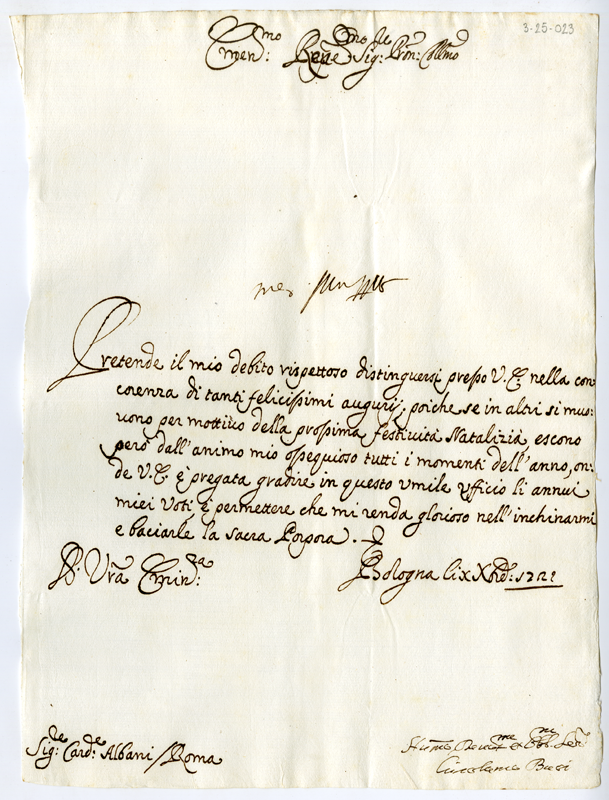 3-25-023
Em.mo Rev.mo Sig.re Pron: Coll.mo
Pretende il mio debito rispettoso distinguersi presso V. E. nella con
corenza di tanti felicissimi augurij; poiche se in altri si mus=
vono per mottivo della prossima festività Natalizia, escono
però dall'animo mio ossequioso tutti i momenti dell'anno, on:
de V. E. è pregata gradire in questo umile ufficio li annui
miei Voti e permettere che mi renda glorioso nell'inchinarmi
e baciarle la sacra Porpora.
Di Vra Emin:za
Bologna li xx Xbre: 1721
Sig:re Card:le Albani / Roma